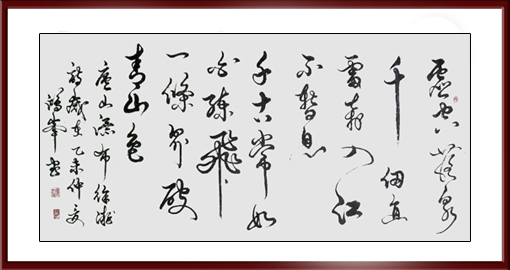 虛空落泉
千仞直
雷奔入江
不暫息
千古常如
白練飛
一條界破
青山色
廬山瀑布徐凝
詩歲在乙未仲夏
鴻峯書